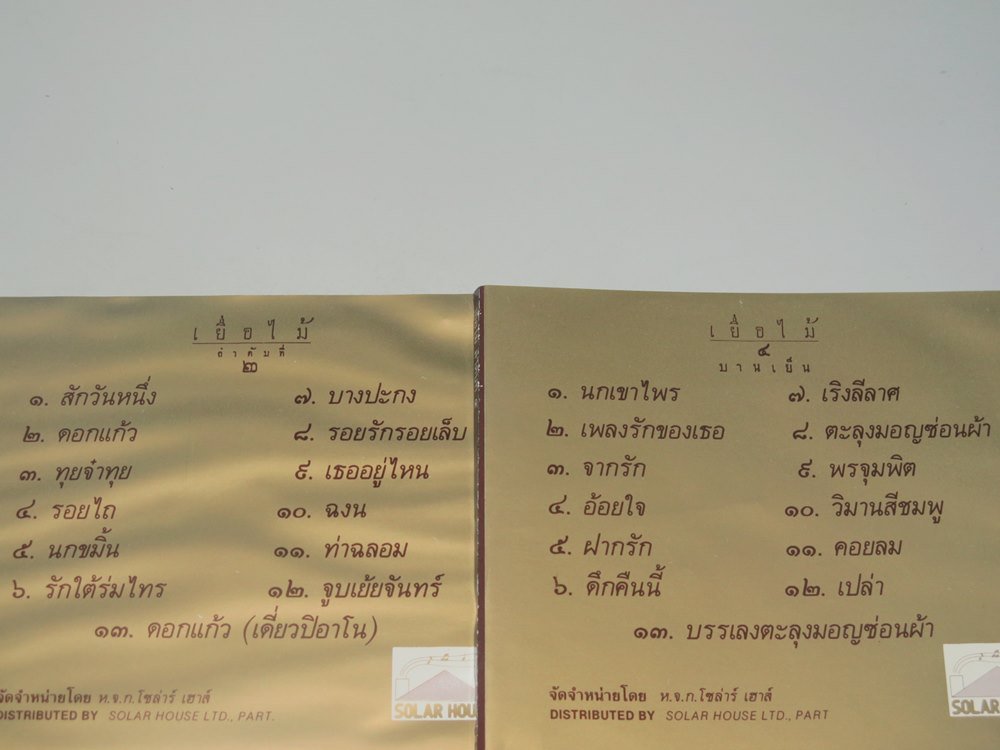 เยื่อไม้
ลำดับที่
๒
๑. สักวันหนึ่ง
๒. ดอกแก้ว
๓. ทุยจ๋าทุย
๔. รอยไถ
๕. นกขมิ้น
๖. รักใต้ร่มไทร
๗. บางปะกง
๘. รอยรักรอยเล็บ
๙. เธออยู่ไหน
๑๐. ฉงน
๑๑. ท่าฉลอม
๑๒. จูบเย้ยจันทร์
๑๓. ดอกแก้ว (เดี่ยวปิอาโน)
จัดจำหน่ายโดย ห.จ.ก.โซล่าร์ เฮาส์
DISTRIBUTED BY SOLAR HOUSE LTD., PART.
SOLAR HOU
เยื่อไม้
๔
บานเย็น
๑. นกเขาไพร
๒. เพลงรักของเธอ
๓. จากรัก
๔. อ้อยใจ
๕. ฝากรัก
๖. ดึกคืนนี้
๗. เริงลีลาศ
๘. ตะลุงมอญซ่อนผ้า
๙. พรจุมพิต
๑๐. วิมานสีชมพู
๑๑. คอยลม
๑๒. เปล่า
๑๓. บรรเลงตะลุงมอญซ่อนผ้า
จัดจำหน่ายโดย ห.จ.ก.โซล่าร์ เฮาส์
DISTRIBUTED BY SOLAR HOUSE LTD., PART
SOLAR